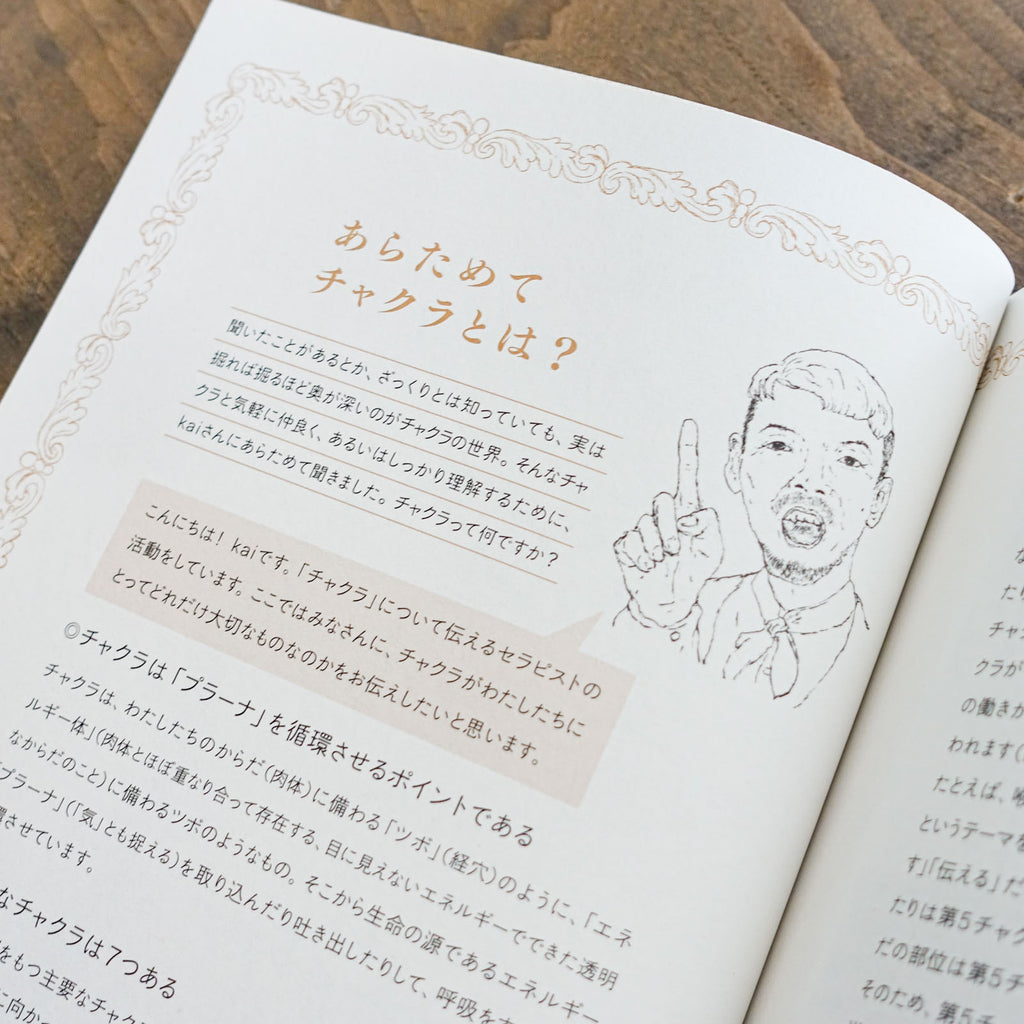 あらためて
チャクラとは？
聞いたことがあるとか、ざっくりとは知っていても、実は
掘れば掘るほど奥が深いのがチャクラの世界。そんなチャ
クラと気軽に仲良く、あるいはしっかり理解するために、
kaiさんにあらためて聞きました。チャクラって何ですか？
こんにちは！ kaiです。「チャクラ」について伝えるセラピストの
活動をしています。ここではみなさんに、チャクラがわたしたちに
とってどれだけ大切なものなのかをお伝えしたいと思います。
◎チャクラは「プラーナ」を循環させるポイントである
チャクラは、わたしたちのからだ（肉体）に備わる「ツボ」（経穴）のように、「エネ
ルギー体」（肉体とほぼ重なり合って存在する、目に見えないエネルギーでできた透明
なからだのこと）に備わるツボのようなもの。そこから生命の源であるエネルギー
「プラーナ」（「気」とも捉える）を取り込んだり吐き出したりして、呼吸を
環させています。
なチャクラは７つある
をもつ主要なチャク
に向かっ
な
たり
チャ
クラが
の働きか
われます（
たとえば、喉
というテーマを
す」「伝える」だ
たりは第５チャク
だの部位は第５チ
そのため、第５チ